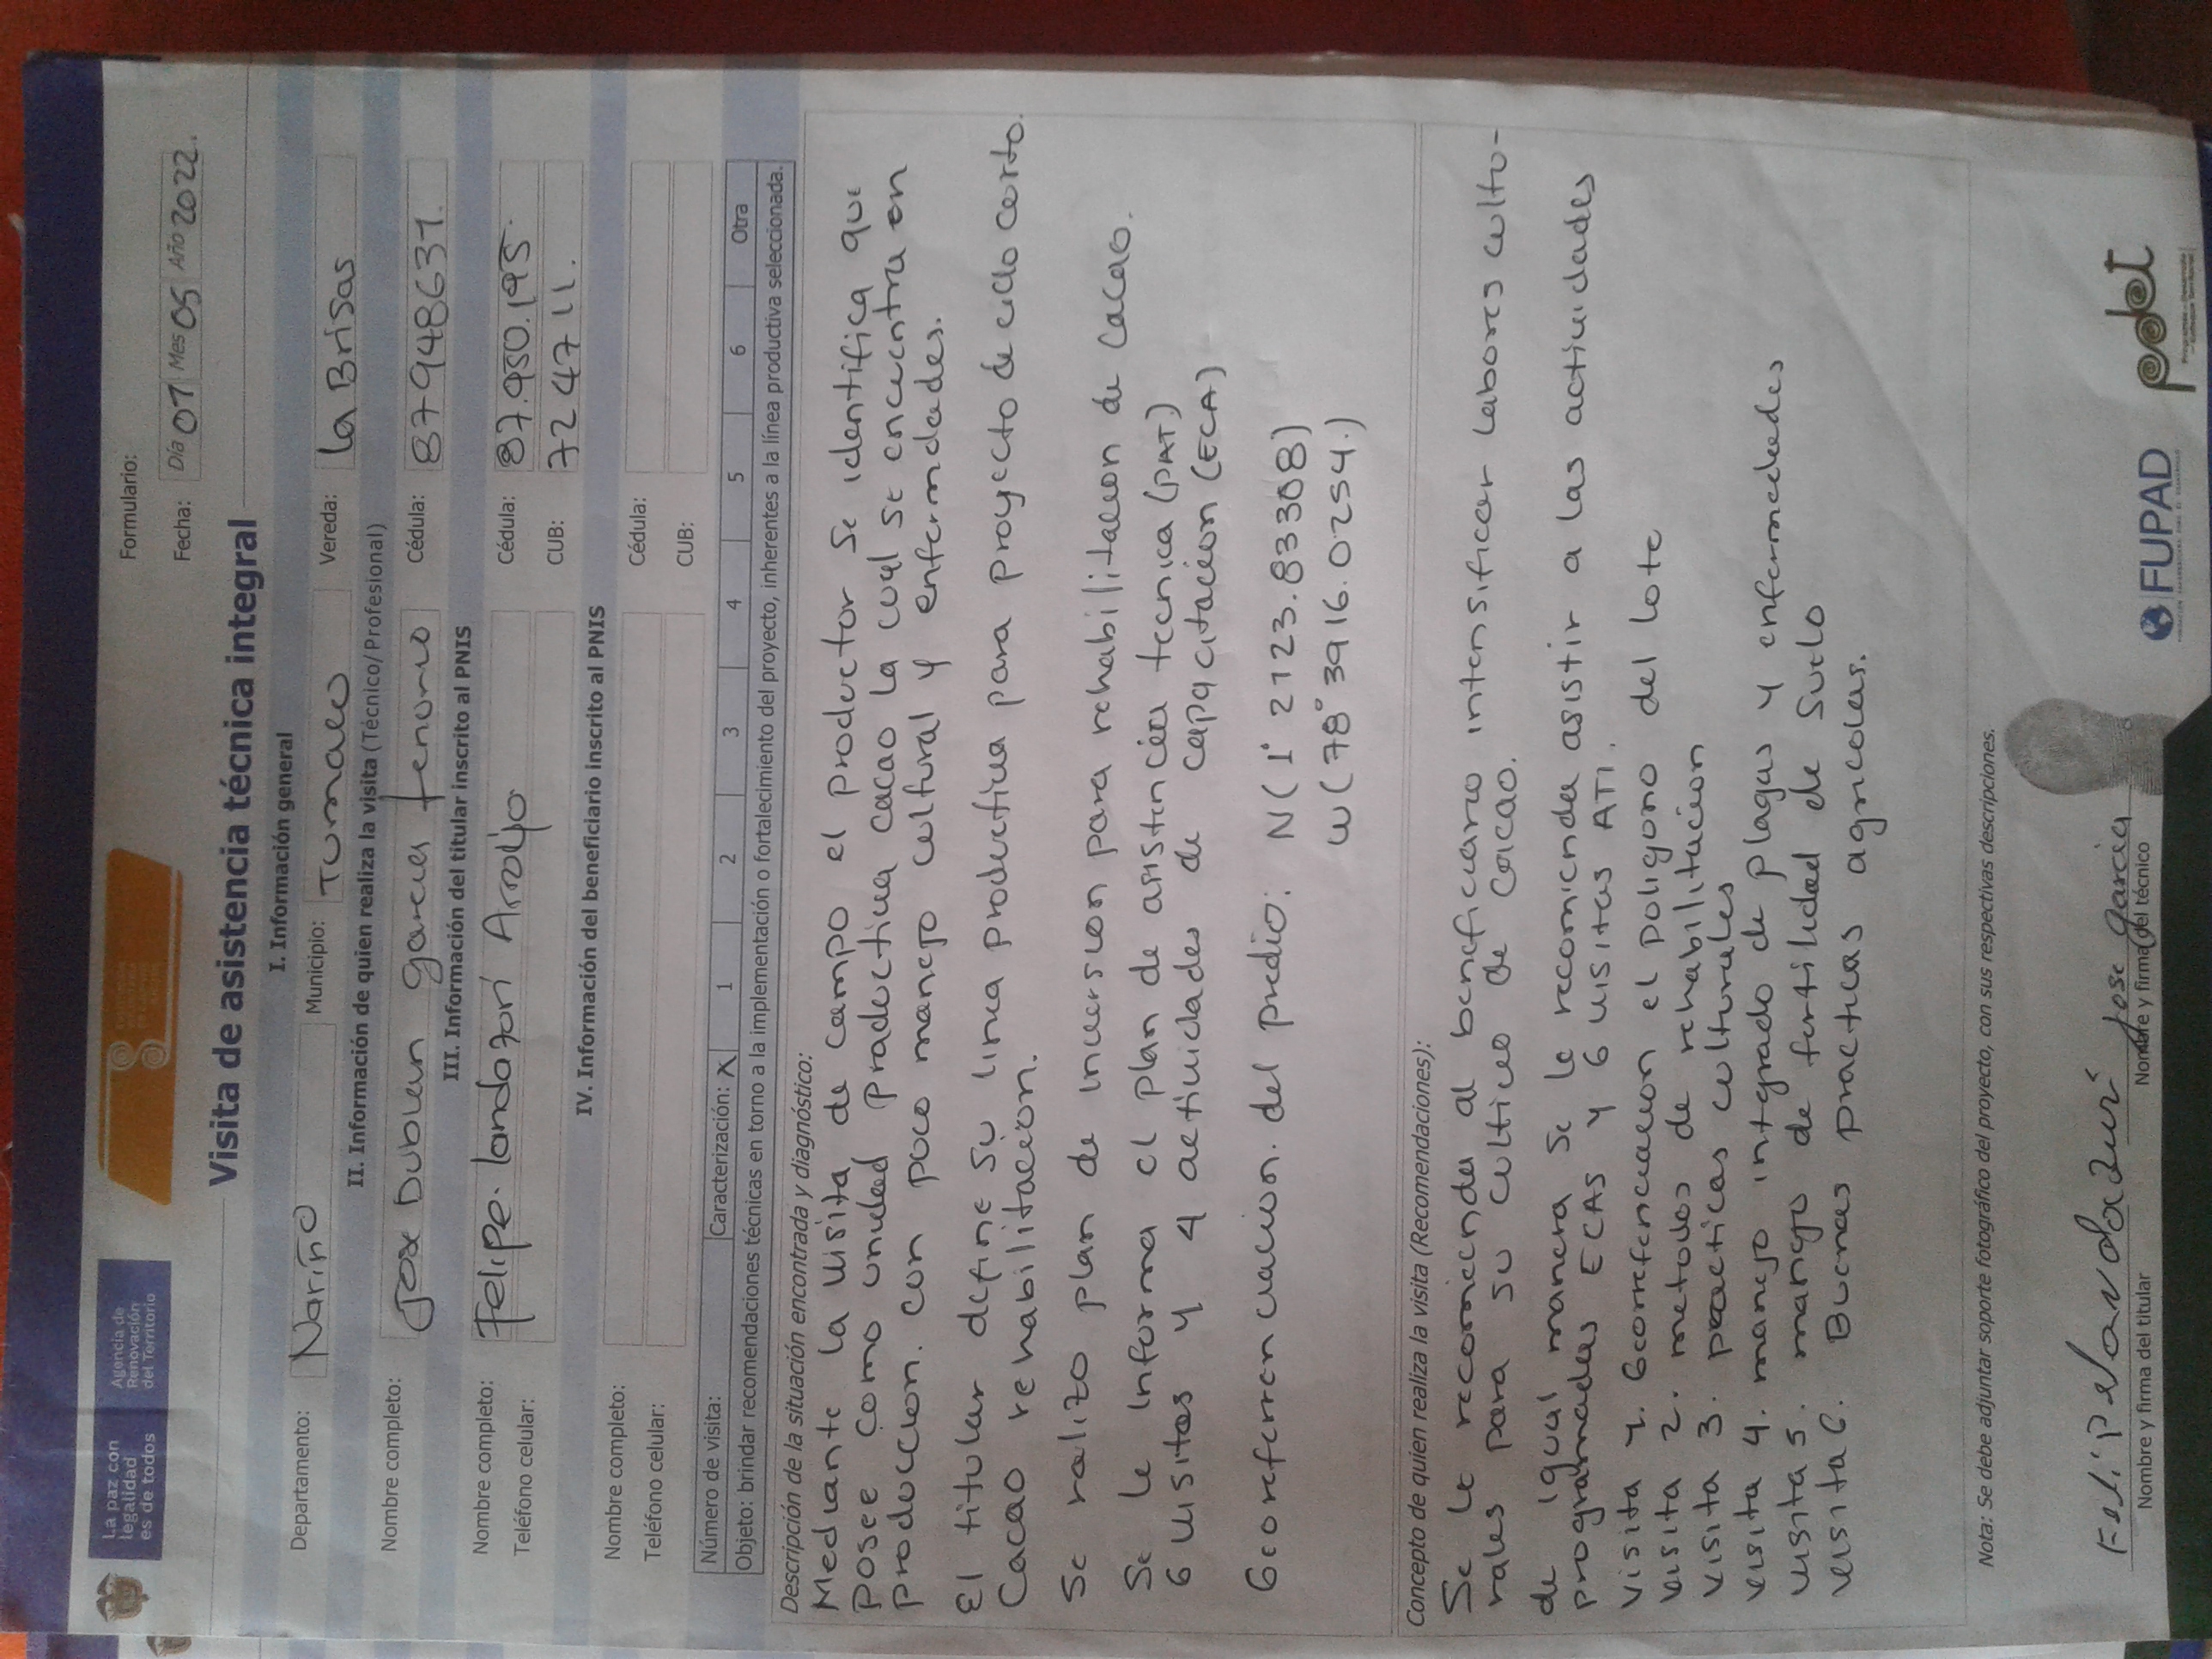 La paz con
legalidad
es de todos
Agencia de
Renovación
del Territorio
Formulario:
Fecha: Día 07 Mes 05 Año 2022.
Visita de asistencia técnica integral
I. Información general
Departamento: Nariño Municipio: Tumaco Vereda: la Brisas
II. Información de quien realiza la visita (Técnico/Profesional)
Nombre completo: Jose Dublan garcia tenorio Cédula: 87948637.
III. Información del titular inscrito al PNIS
Nombre completo: Felipe. landazori Arrollo Cédula: 87.950.195.
Teléfono celular: CUB: 724711.
IV. Información del beneficiario inscrito al PNIS
Nombre completo: Cédula:
Teléfono celular: CUB:
Número de visita: Caracterización: X 1 2 3 4 5 6 Otra
Objeto: brindar recomendaciones técnicas en torno a la implementación o fortalecimiento del proyecto, inherentes a la línea productiva seleccionada.
Descripción de la situación encontrada y diagnóstico:
Mediante la visita de campo el productor se identifica que
posee como unidad productiva cacao la cual se encuentra en
produccion. con poco manejo cultural y enfermedades.
El titular define su linea productiva para proyecto de ciclo corto.
Cacao rehabilitacion.
Se realizo plan de inversion para rehabilitacion de Cacao.
Se le informa el plan de asistencia tecnica (PAT)
6 visitas y 4 actividades de capacitacion (ECA)
Georeferenciacion. del predio: N(1° 2723.83308)
W(78° 3916.0254.)
Concepto de quien realiza la visita (Recomendaciones):
Se le recomienda al beneficiario intensificar labores cultu-
rales para su cultivo de Cacao.
de igual manera se le recomienda asistir a las actividades
programadas ECAS y 6 visitas ATI.
Visita 1. Georefenciacion el poligono del lote
visita 2. metodos de rehabilitacion
visita 3. practicas culturales
visita 4. manejo integrado de plagas y enfermedades
visita 5. manejo de fertilidad de Suelo
visita 6. Buenas practicas agricolas.
Nota: Se debe adjuntar soporte fotográfico del proyecto, con sus respectivas descripciones.
Felipe landazuri
Jose Garcia
Nombre y firma del titular
Nombre y firma del técnico
FUPAD
pdet